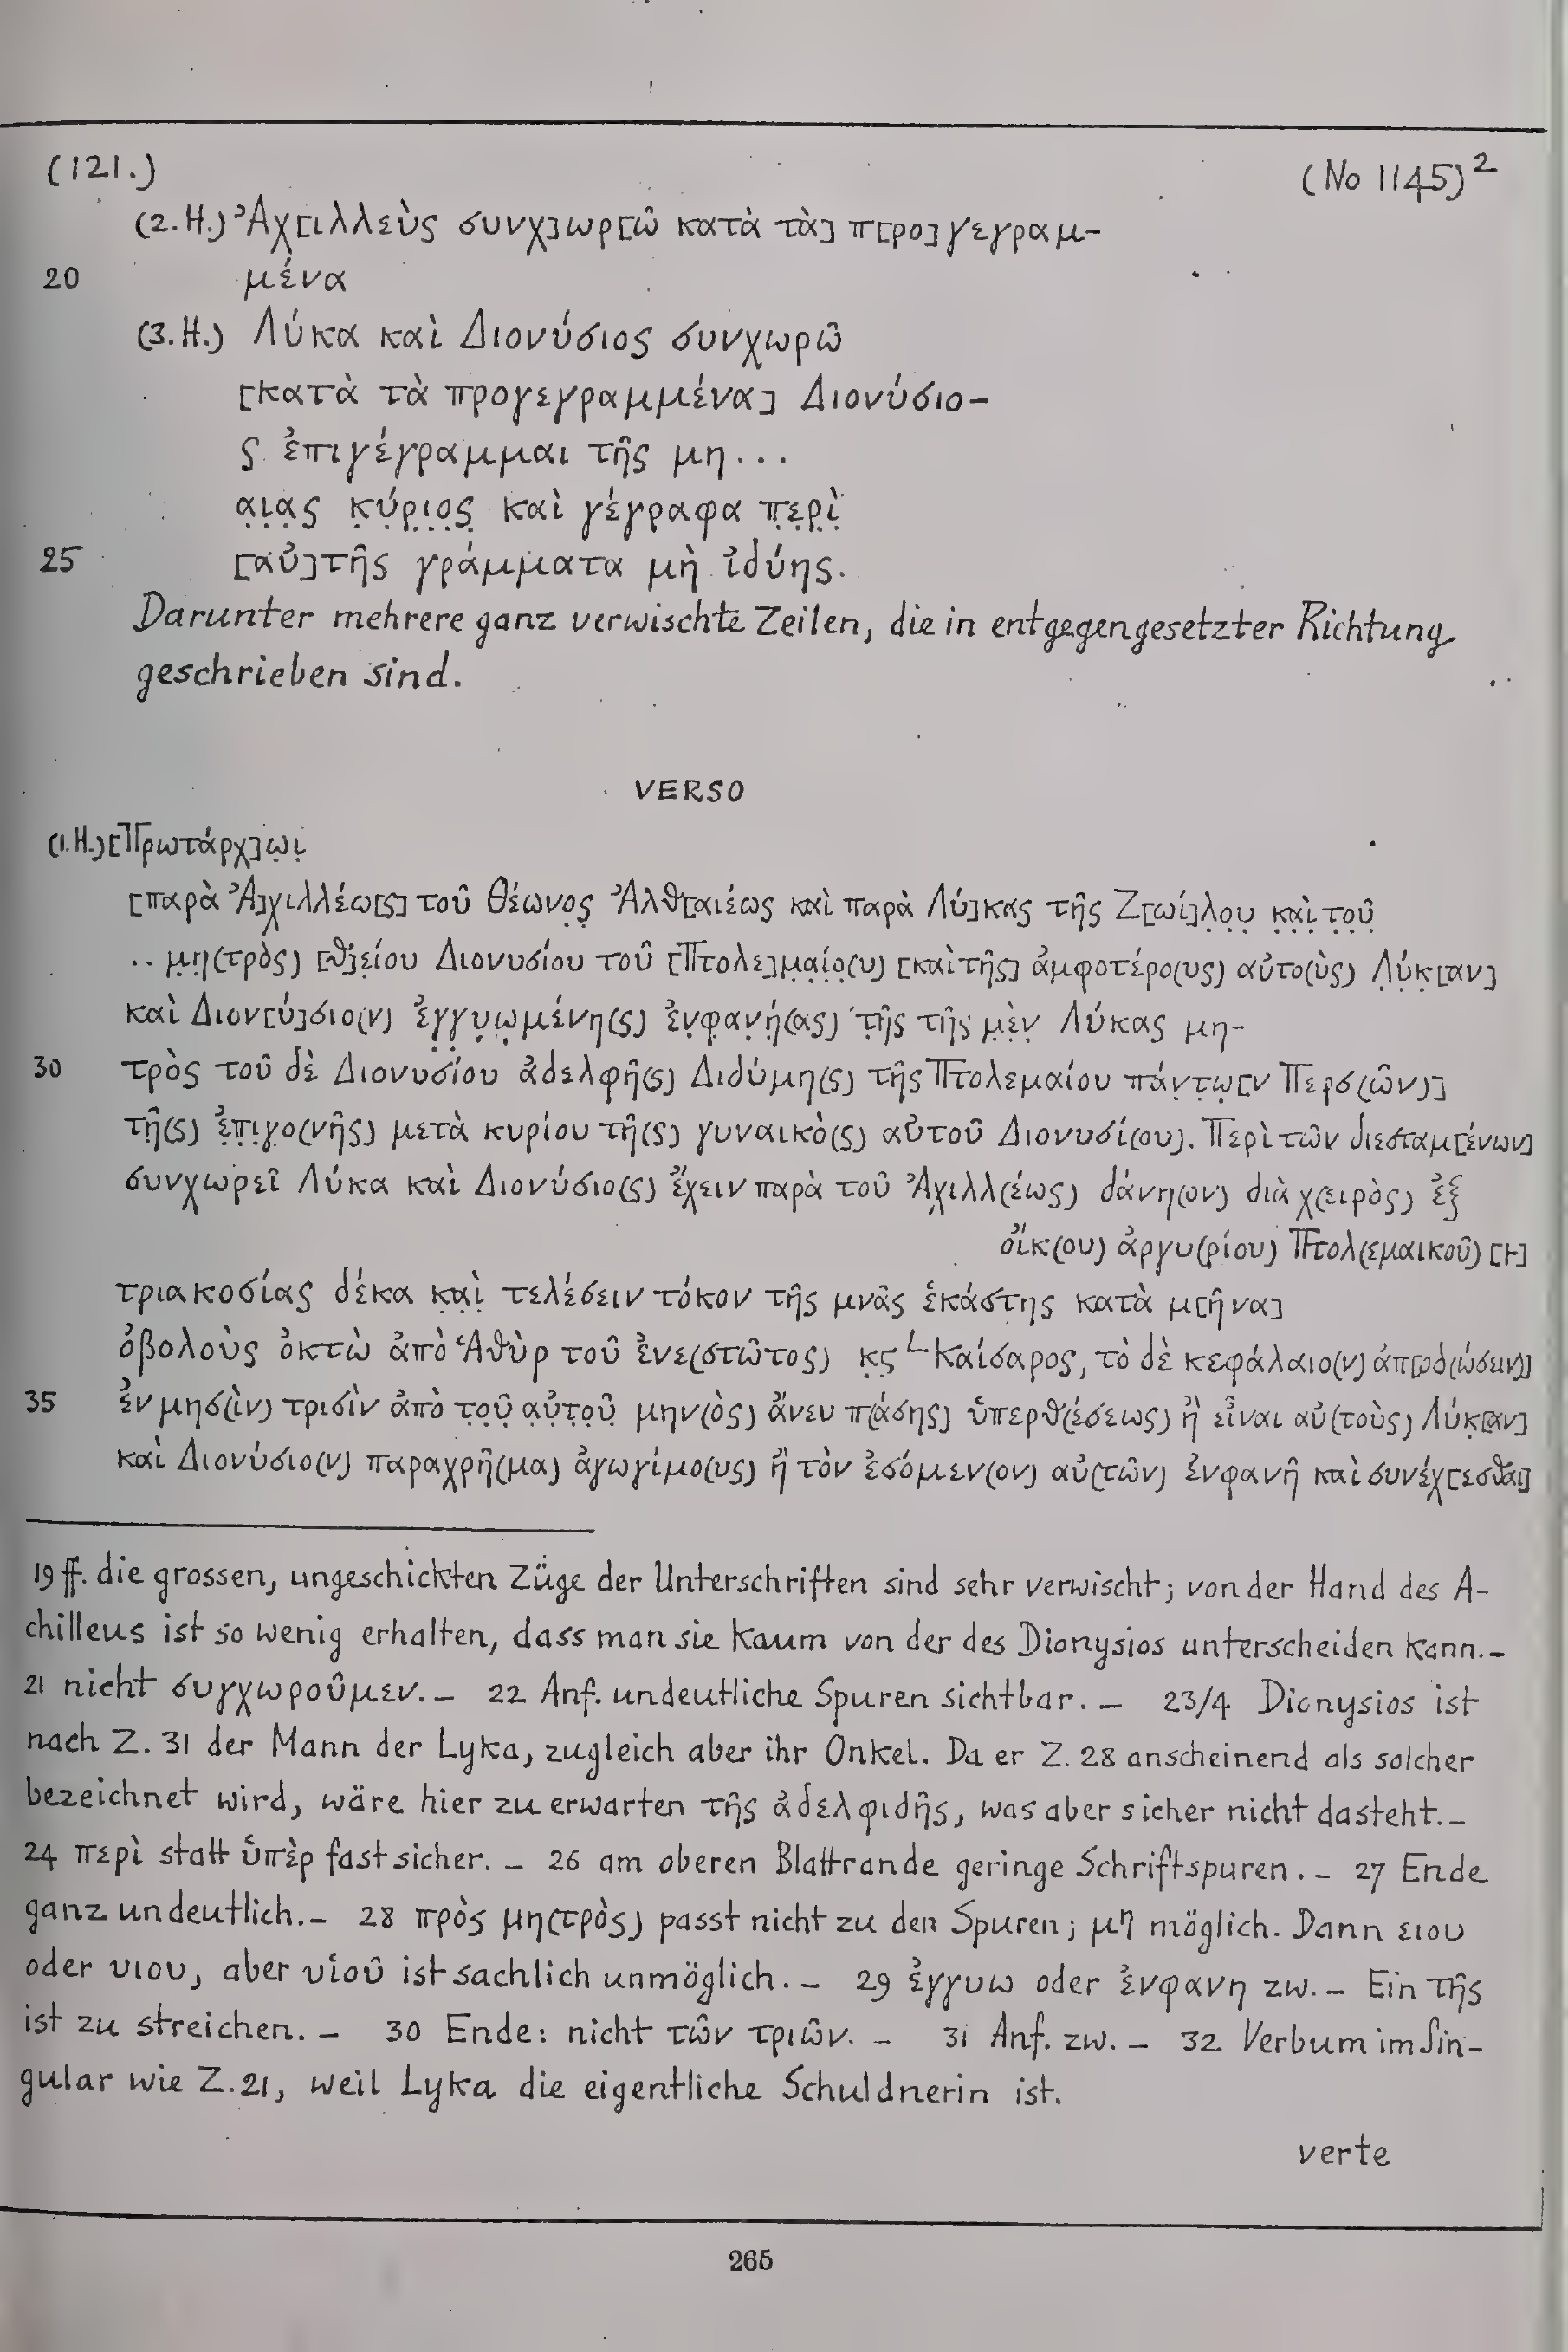 (121.) (No 1145)²
(2.H.) Ἀχ[ιλλεὺς συνχ]ωρ[ῶ κατὰ τὰ] π[ρο]γεγραμ-
20 μένα
(3.H.) Λύκα καὶ Διονύσιος συνχωρῶ
[κατὰ τὰ προγεγραμμένα] Διονύσιο-
ς ἐπιγέγραμμαι τῆς μη...
α̣ι̣α̣ς κ̣ύ̣ρ̣ι̣ο̣ς̣ καὶ γέγραφα π̣ε̣ρ̣ὶ̣
25 [αὐ]τῆς γράμματα μὴ ἰδύης.
Darunter mehrere ganz verwischte Zeilen, die in entgegengesetzter Richtung
geschrieben sind.
VERSO
(1.H.) [Πρωτάρχ]ω̣ι̣
[παρὰ Ἀ]χιλλέω[ς] τοῦ Θέωνο̣ς̣ Ἀλθ[αιέως καὶ παρὰ Λύ]κας τῆς Ζ[ωί]λ̣ο̣υ̣ κ̣α̣ὶ̣ τ̣ο̣ῦ̣
.. μ̣η̣(τρὸς) [θ]ε̣ίου Διονυσίου τοῦ [Πτολε]μ̣α̣ί̣ο̣(υ) [καὶ τῆς] ἀμφοτέρο(υς) αὐτο(ὺς) Λ̣ύ̣κ̣[αν]
καὶ Διον[ύ]σιο(ν) ἐγ̣γ̣υ̣ω̣μένη(ς) ἐν̣φ̣α̣ν̣ή̣(ας) τ̣ῆ̣ς τῆ̣ς̣ μ̣ὲ̣ν̣ Λύκας μη-
30 τρὸς τοῦ δὲ Διονυσίου ἀδελφῆ(ς) Διδύμη(ς) τῆς Πτολεμαίου πάν̣τ̣ω̣[ν Περσ(ῶν)]
τῆ̣(ς) ἐ̣π̣ι̣γ̣ο(νῆς) μετὰ κυρίου τῆ(ς) γυναικὸ(ς) αὐτοῦ Διονυσί(ου). Περὶ τῶν διεσταμ[ένων]
συνχωρεῖ Λύκα καὶ Διονύσιο(ς) ἔχειν παρὰ τοῦ Ἀχιλλ(έως) δάνη(ον) διὰ χ(ειρὸς) ἐξ
οἴκ(ου) ἀργυ(ρίου) Πτολ(εμαικοῦ) [⊢]
τριακοσίας δέκα κ̣α̣ὶ̣ τελέσειν τόκον τῆς μνᾶς ἑκάστης κατὰ μ[ῆνα]
ὀβολοὺς ὀκτὼ ἀπὸ Ἁθὺρ τοῦ ἐνε(στῶτος) κ̣ς̣ L Καίσαρος, τὸ δὲ κεφάλαιο(ν) ἀπ[οδ(ώσειν)]
35 ἐν μησ(ὶν) τρισὶν ἀπὸ τ̣ο̣ῦ̣ α̣ὐ̣τ̣ο̣ῦ̣ μην(ὸς) ἄνευ π(άσης) ὑπερθ(έσεως) ἢ εἶναι αὐ(τοὺς) Λύκ̣[αν]
καὶ Διονύσιο(ν) παραχρῆ(μα) ἀγωγίμο(υς) ἢ τὸν ἐσόμεν(ον) αὐ(τῶν) ἐνφανῆ καὶ συνέχ[εσθαι]
19 ff. die grossen, ungeschickten Züge der Unterschriften sind sehr verwischt; von der Hand des A-
chilleus ist so wenig erhalten, dass man sie kaum von der des Dionysios unterscheiden kann.-
21 nicht συγχωροῦμεν. - 22 Anf. undeutliche Spuren sichtbar. - 23/4 Dionysios ist
nach Z. 31 der Mann der Lyka, zugleich aber ihr Onkel. Da er Z. 28 anscheinend als solcher
bezeichnet wird, wäre hier zu erwarten τῆς ἀδελφιδῆς, was aber sicher nicht dasteht. -
24 περὶ statt ὑπὲρ fast sicher. - 26 am oberen Blattrande geringe Schriftspuren. - 27 Ende
ganz undeutlich. - 28 πρὸς μη(τρὸς) passt nicht zu den Spuren; μη möglich. Dann ειου
oder υιου, aber υἱοῦ ist sachlich unmöglich. - 29 ἐγγυω oder ἐνφανη zw. - Ein τῆς
ist zu streichen. - 30 Ende: nicht τῶν τριῶν. - 31 Anf. zw. - 32 Verbum im Sin-
gular wie Z. 21, weil Lyka die eigentliche Schuldnerin ist.
verte
265